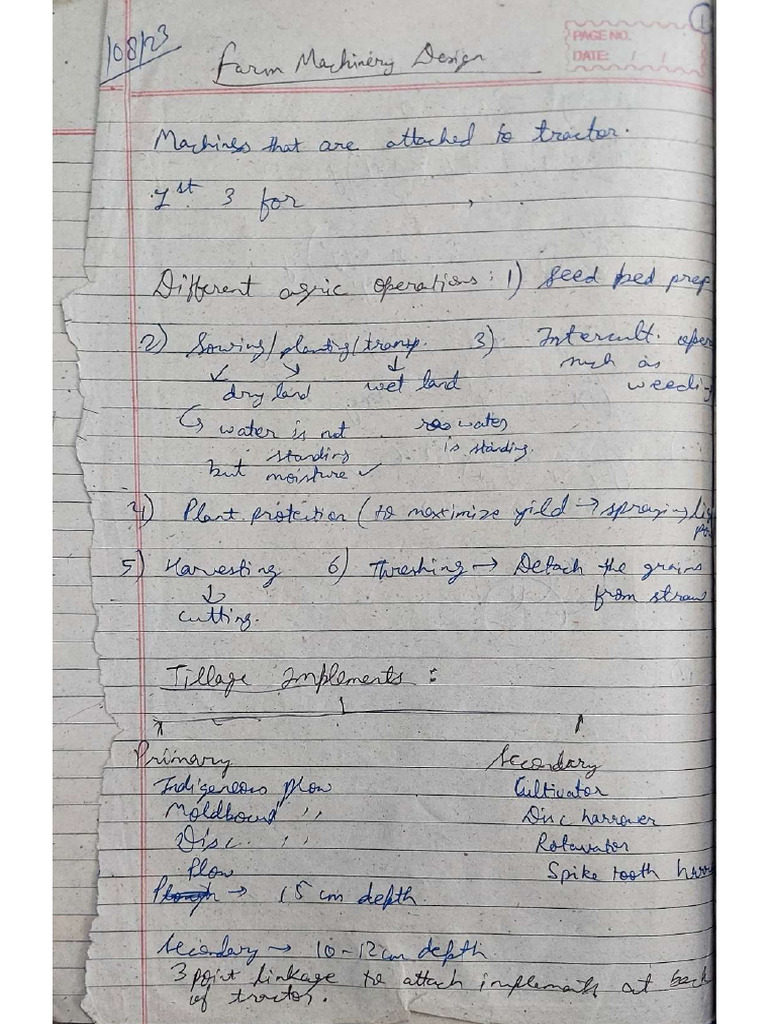 1
PAGE NO.
DATE: / /
10823
Farm Machinery Design
Machines that are attached to tractor.
1st 3 for
Different agric operations: 1) Seed bed prep
2) Sowing/planting/transp. 3) Intercult. oper
such as
dry land wet land weedin
water is not water
standing is standing.
but moisture ✓
4) Plant protection (to maximize yild → spraying
5) Harvesting 6) Threshing → Detach the grains
cutting. from straw
Tillage Implements :
Primary Secondary
Indigeneous plow Cultivator
Moldboard ,, Disc harrower
Disc ,, Rotavator
Plow Spike tooth harro
→ 15 cm depth
Secondary → 10-12cm depth.
3 point linkage to attach implements at back
of tractor.